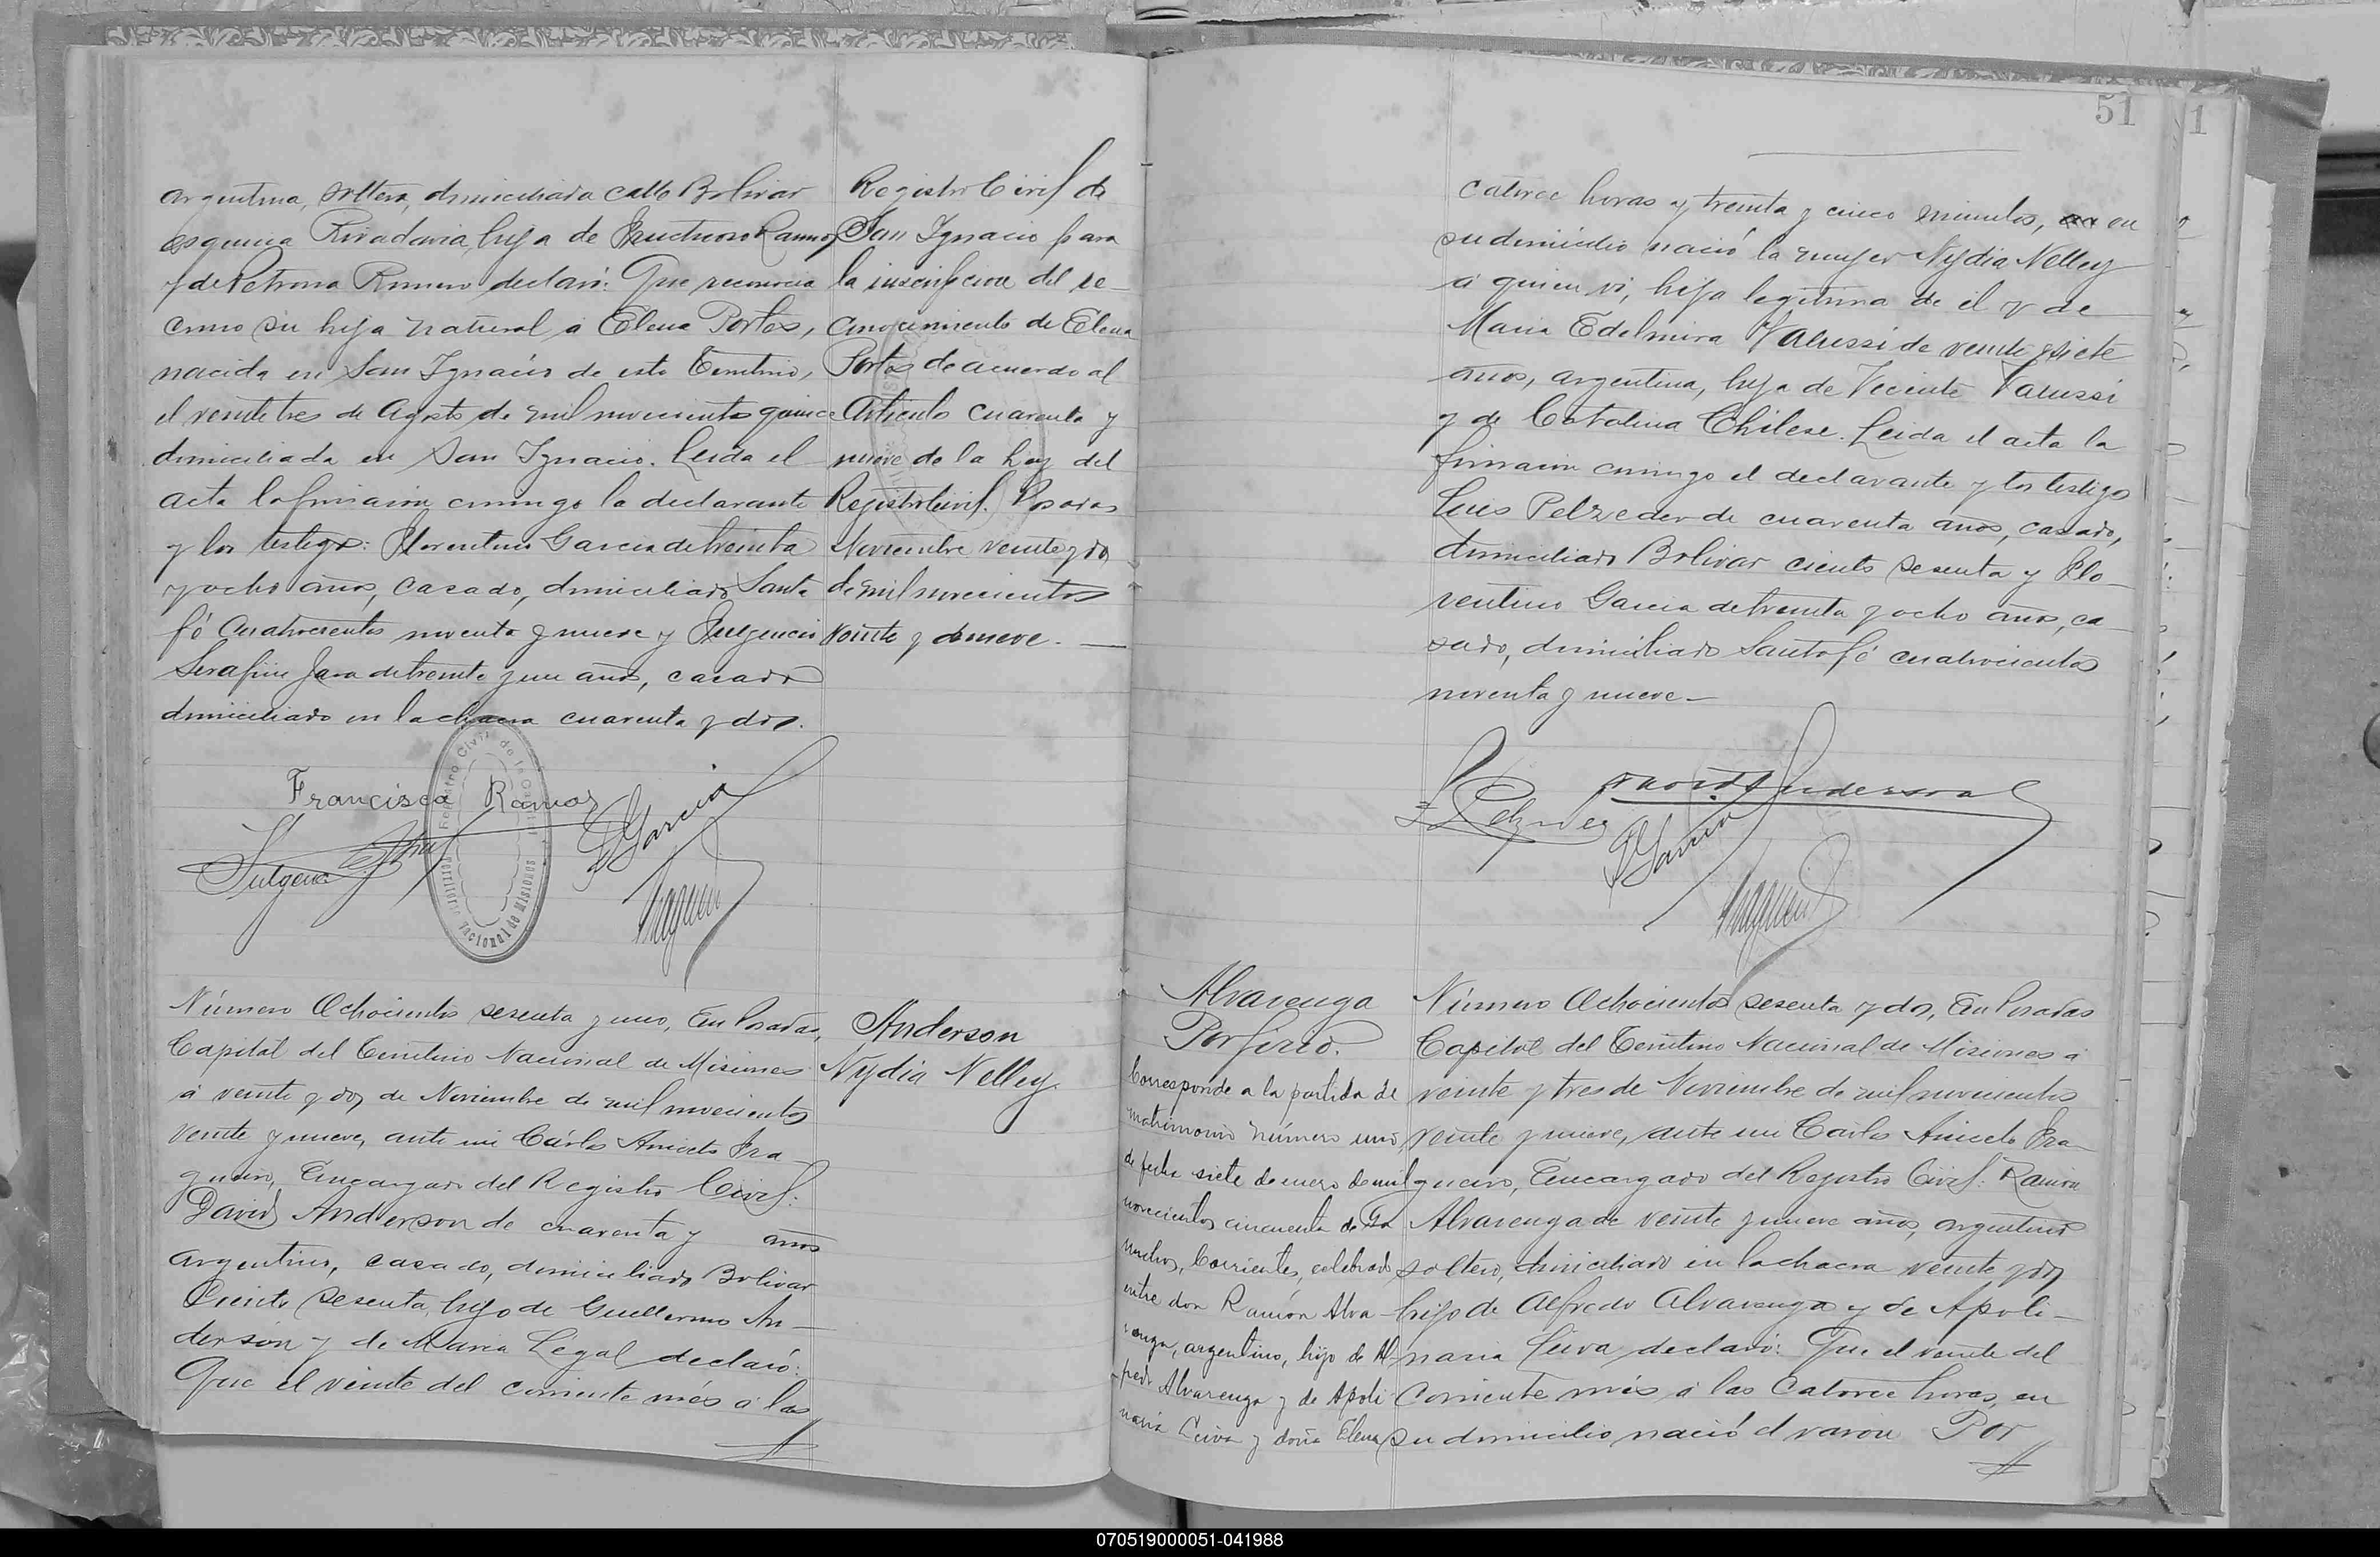 argentina, soltera, domiciliada calle Bolivar
esquina Rivadavia, hija de Fructuoso Ramos
y de Petrona Romero declaró: Que reconocía
como su hija natural a Elena Portes,
nacida en San Ignacio de este Territorio,
el veinte tres de Agosto de mil novecientos quince
domiciliada en San Ignacio. Leida el
acta la firmaron conmigo la declarante
y los testigos: Florentino Garcia de treinta
y ocho años, casado, domiciliado Santa
fé Cuatrocientos noventa y nueve y Fulgencio
Serafin Jara de treinta y un años, casado
domiciliado en la chacra cuarenta y dos.
Registro Civil de
San Ignacio para
la inscripcion del re-
conocimiento de Elena
Portes de acuerdo al
Articulo cuarenta y
nueve de la Ley del
Registro Civil. Posadas
Noviembre veinte y dos
de mil novecientos
veinte y nueve. —
Francisca Ramos
Fulgencio
F Garcia
Registro Civil de la Capital
Territorio Nacional de Misiones
Número Ochocientos sesenta y uno, En Posadas,
Capital del Territorio Nacional de Misiones
á veinte y dos de Noviembre de mil novecientos
veinte y nueve, ante mi Cárlos Aniceto Fra-
gueiro, Encargado del Registro Civil:
David Anderson de cuarenta y años
argentino, casado, domiciliado Bolivar
Ciento sesenta, hijo de Guillermo An-
derson y de Maria Legal declaró:
Que el veinte del corriente més á las
Anderson
Nydia Nelley.
51
1
catorce horas y treinta y cinco minutos, en
su domicilio nació la mujer Nydia Nelley
á quien vi, hija legitima de él y de
Maria Edelmira Varussi de veinte y siete
años, argentina, hija de Vicente Varussi
y de Catalina Chilese. Leida el acta la
firmaron conmigo el declarante y los testigos
Luis Pelzeder de cuarenta años, casado,
domiciliado Bolivar ciento sesenta y Flo-
rentino Garcia de treinta y ocho años, ca-
sado, domiciliado Santa fé cuatrocientos
noventa y nueve —
David Anderson
F Garcia
Alvarenga
Porfirio.
Corresponde a la partida de
matrimonio número uno,
de fecha siete de enero de mil
novecientos cincuenta de Ga
ruchos, Corrientes, celebrado
entre don Ramón Alva-
renga, argentino, hijo de Al-
fredo Alvarenga y de Apoli
naria Leiva y doña Elena
Número Ochocientos sesenta y dos, En Posadas
Capital del Territorio Nacional de Misiones á
veinte y tres de Noviembre de mil novecientos
veinte y nueve, ante mi Carlos Aniceto Fra-
gueiro, Encargado del Registro Civil: Ramon
Alvarenga de veinte y nueve años, argentino
soltero, domiciliado en la chacra veinte y dos
hijo de Alfredo Alvarenga y de Apoli-
naria Leiva declaró: Que el veinte del
Corriente més á las Catorce horas, en
su domicilio nació el varon Por
070519000051-041988